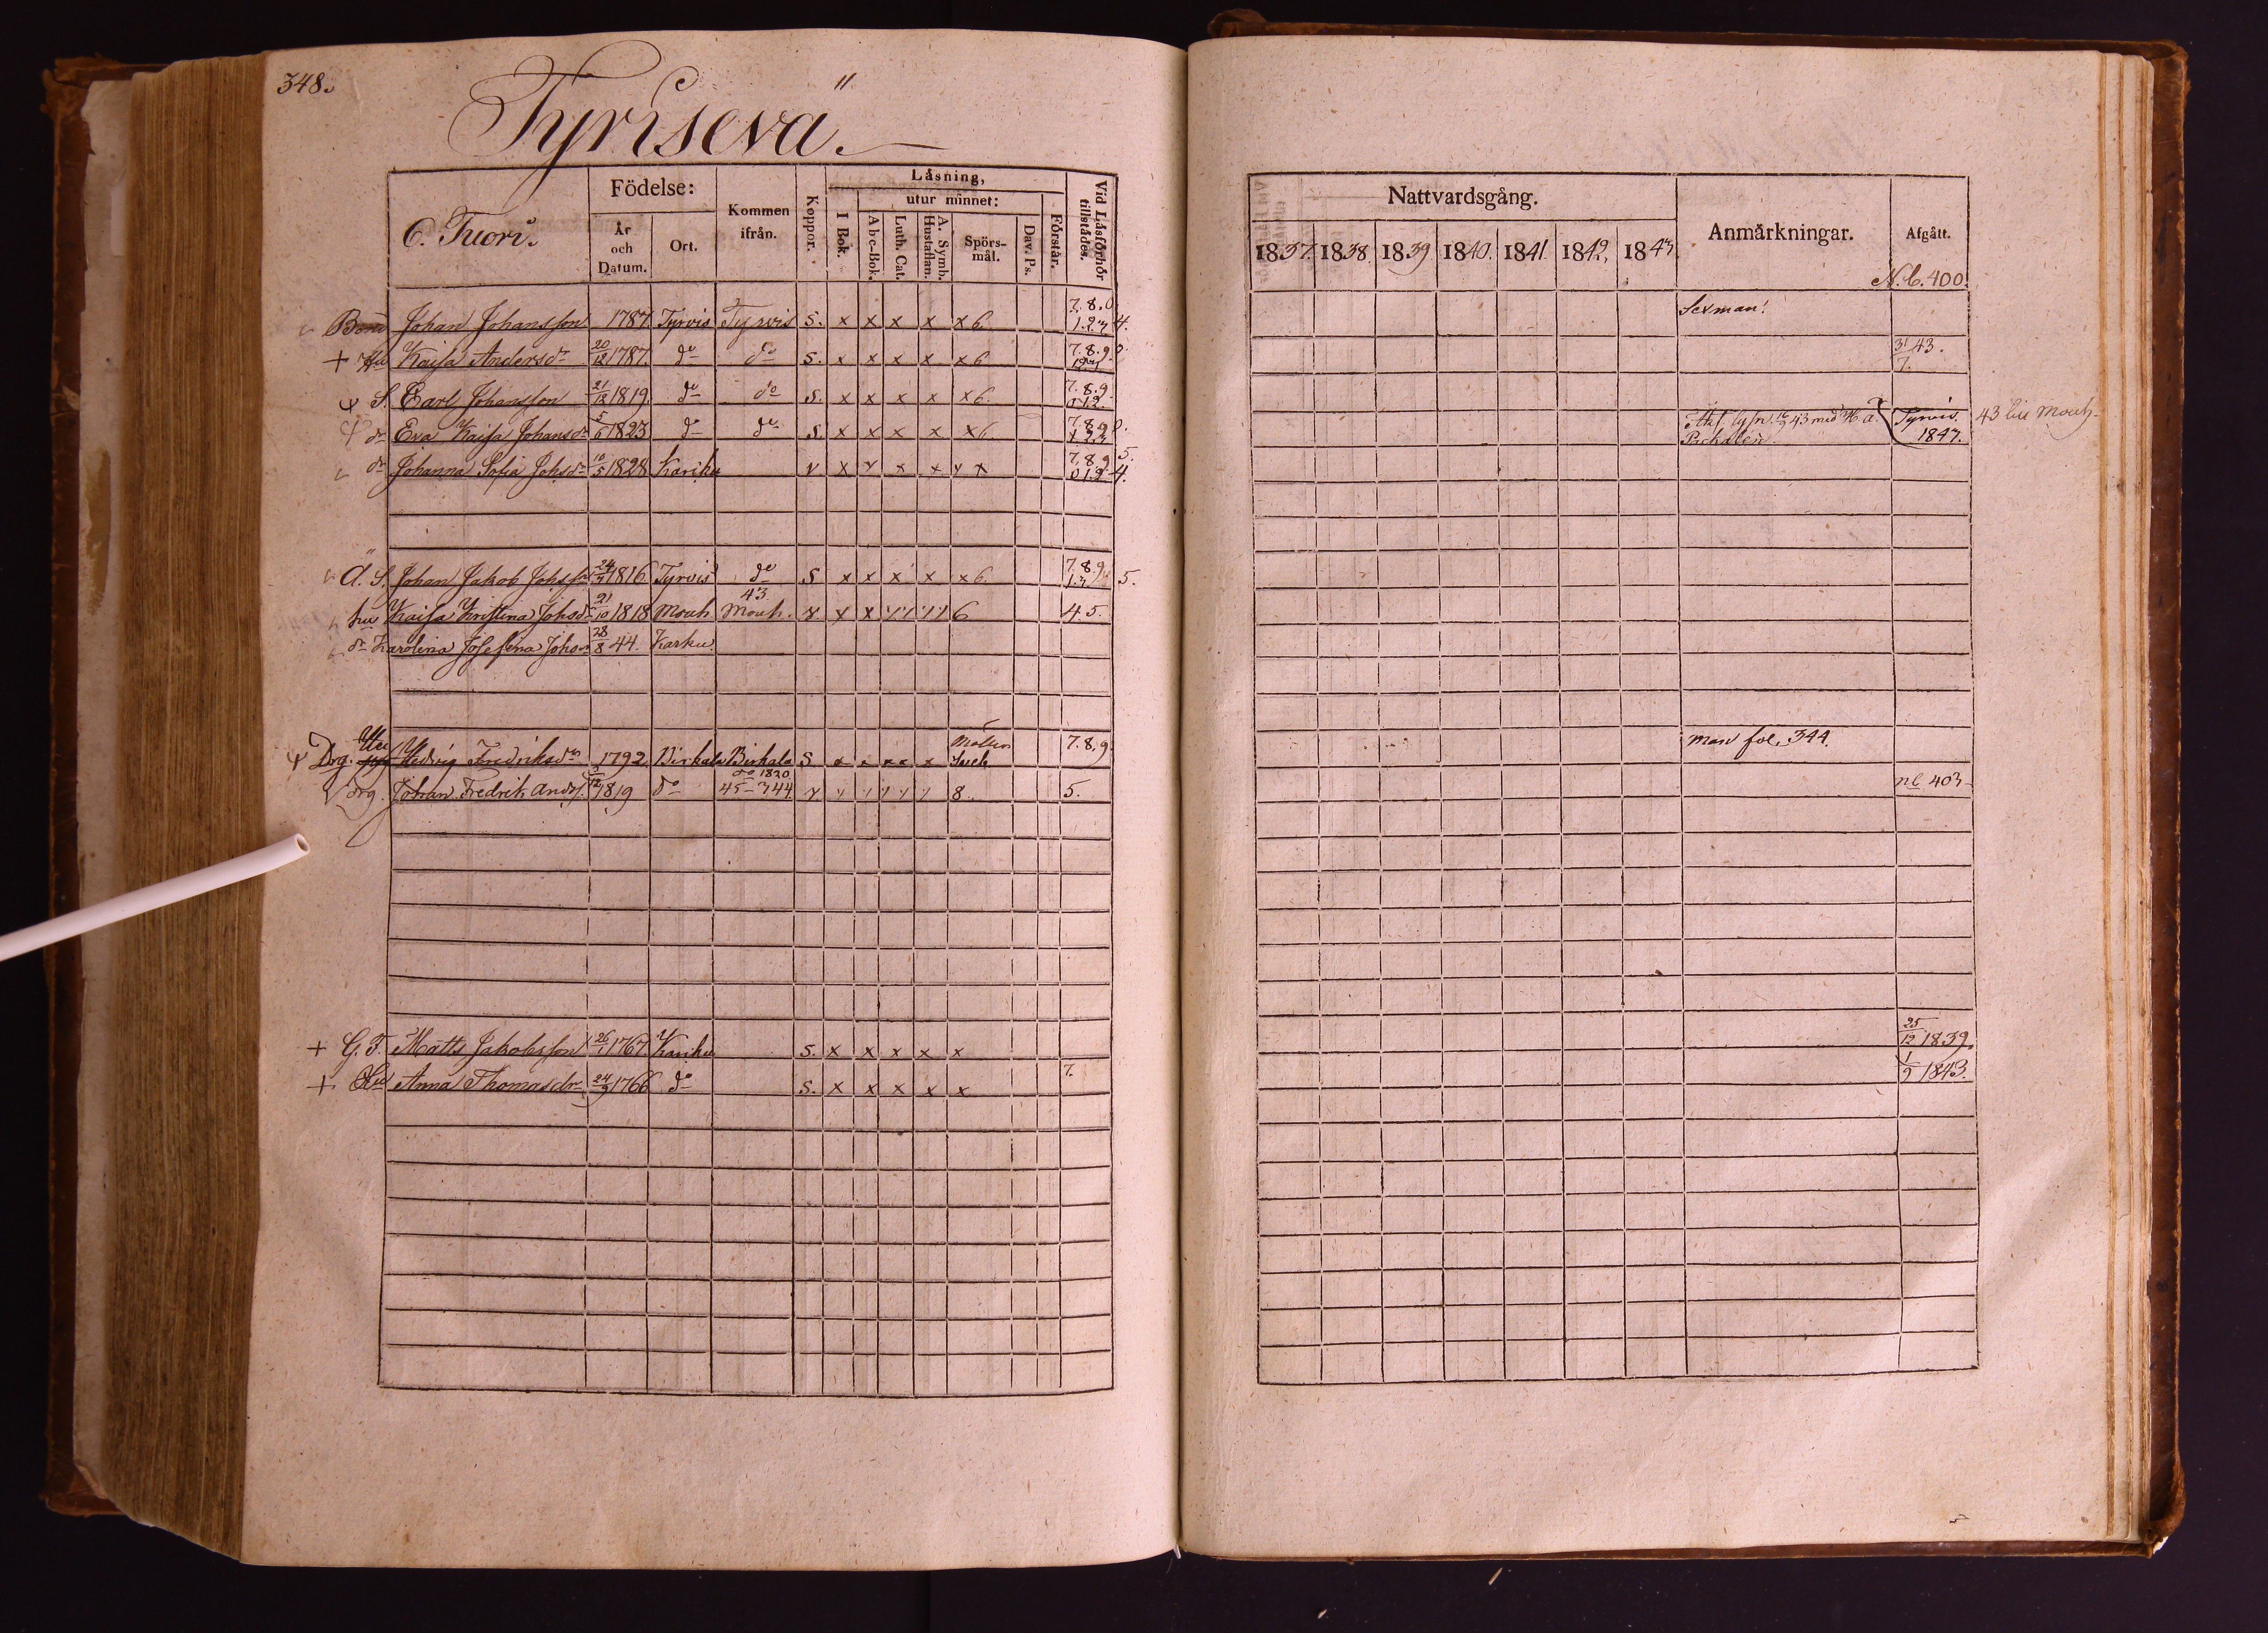 348.
Tyriseva.
Födelse:
Läsning,
utur minnet:
6. Tuori.
År och Datum.
Ort.
Kommen ifrån.
Koppor.
I Bok.
Abc-Bok.
Luth. Cat.
A. Symb. Hustaflan.
Spörsmål.
Dav. Ps.
Förstår.
Vid Läsförhör tillstädes.
Nattvardsgång.
Anmärkningar.
Afgått.
1837. 1838. 1839. 1840. 1841. 1842. 1843.
N.b. 400.
Johan Johansson 1787 Tyrvis Tyrvis S. x x x x x 6. 7.8.0 1.2.3 4. Sexman!
+ Hu Kaisa Andersdr 20/12 1787. do do S. x x x x x 6 7.8.9.0. 31/7 43.
S. Carl Johansson 21/12 1819. do do S. x x x x x 6. 7.8.9 0 1.2.
dr Eva Kaisa Johansdr 5/6 1823 do do S. x x x x x 6 7.8.9.0. Tyrvis 1843. 43 till Mouh
dr Johanna Sofia Johsdr 10/5 1828 Karku v x v x x v x 7.8.9. 5. 0 1.2 4.
Ä. S. Johan Jakob Johsson 24/7 1816 Tyrvis do S x x x x x 6. 7.8.9 5.
hu Kaisa Kristina Johsdr 21/10 1818 Mouh 43 Mouh. v. x x 6 4 5.
dr Karolina Josefina Johsdr 28/8 44. Karku
Drg. Hu Hedvig Fredriksdr 1792. Birkala Birkala S. x x x x x 7.8.9. man fol. 344.
drg. Johan Fredrik Andss. 1819 do do 1820 45-344 8. 5. nb 403
+ G. F. Matts Jakobsson 26/1 1767 Karku S. x x x x x 25/12 1839.
+ Hu Anna Thomasdr 24/9 1766 do S. x x x x x 7. 1/9 1843.